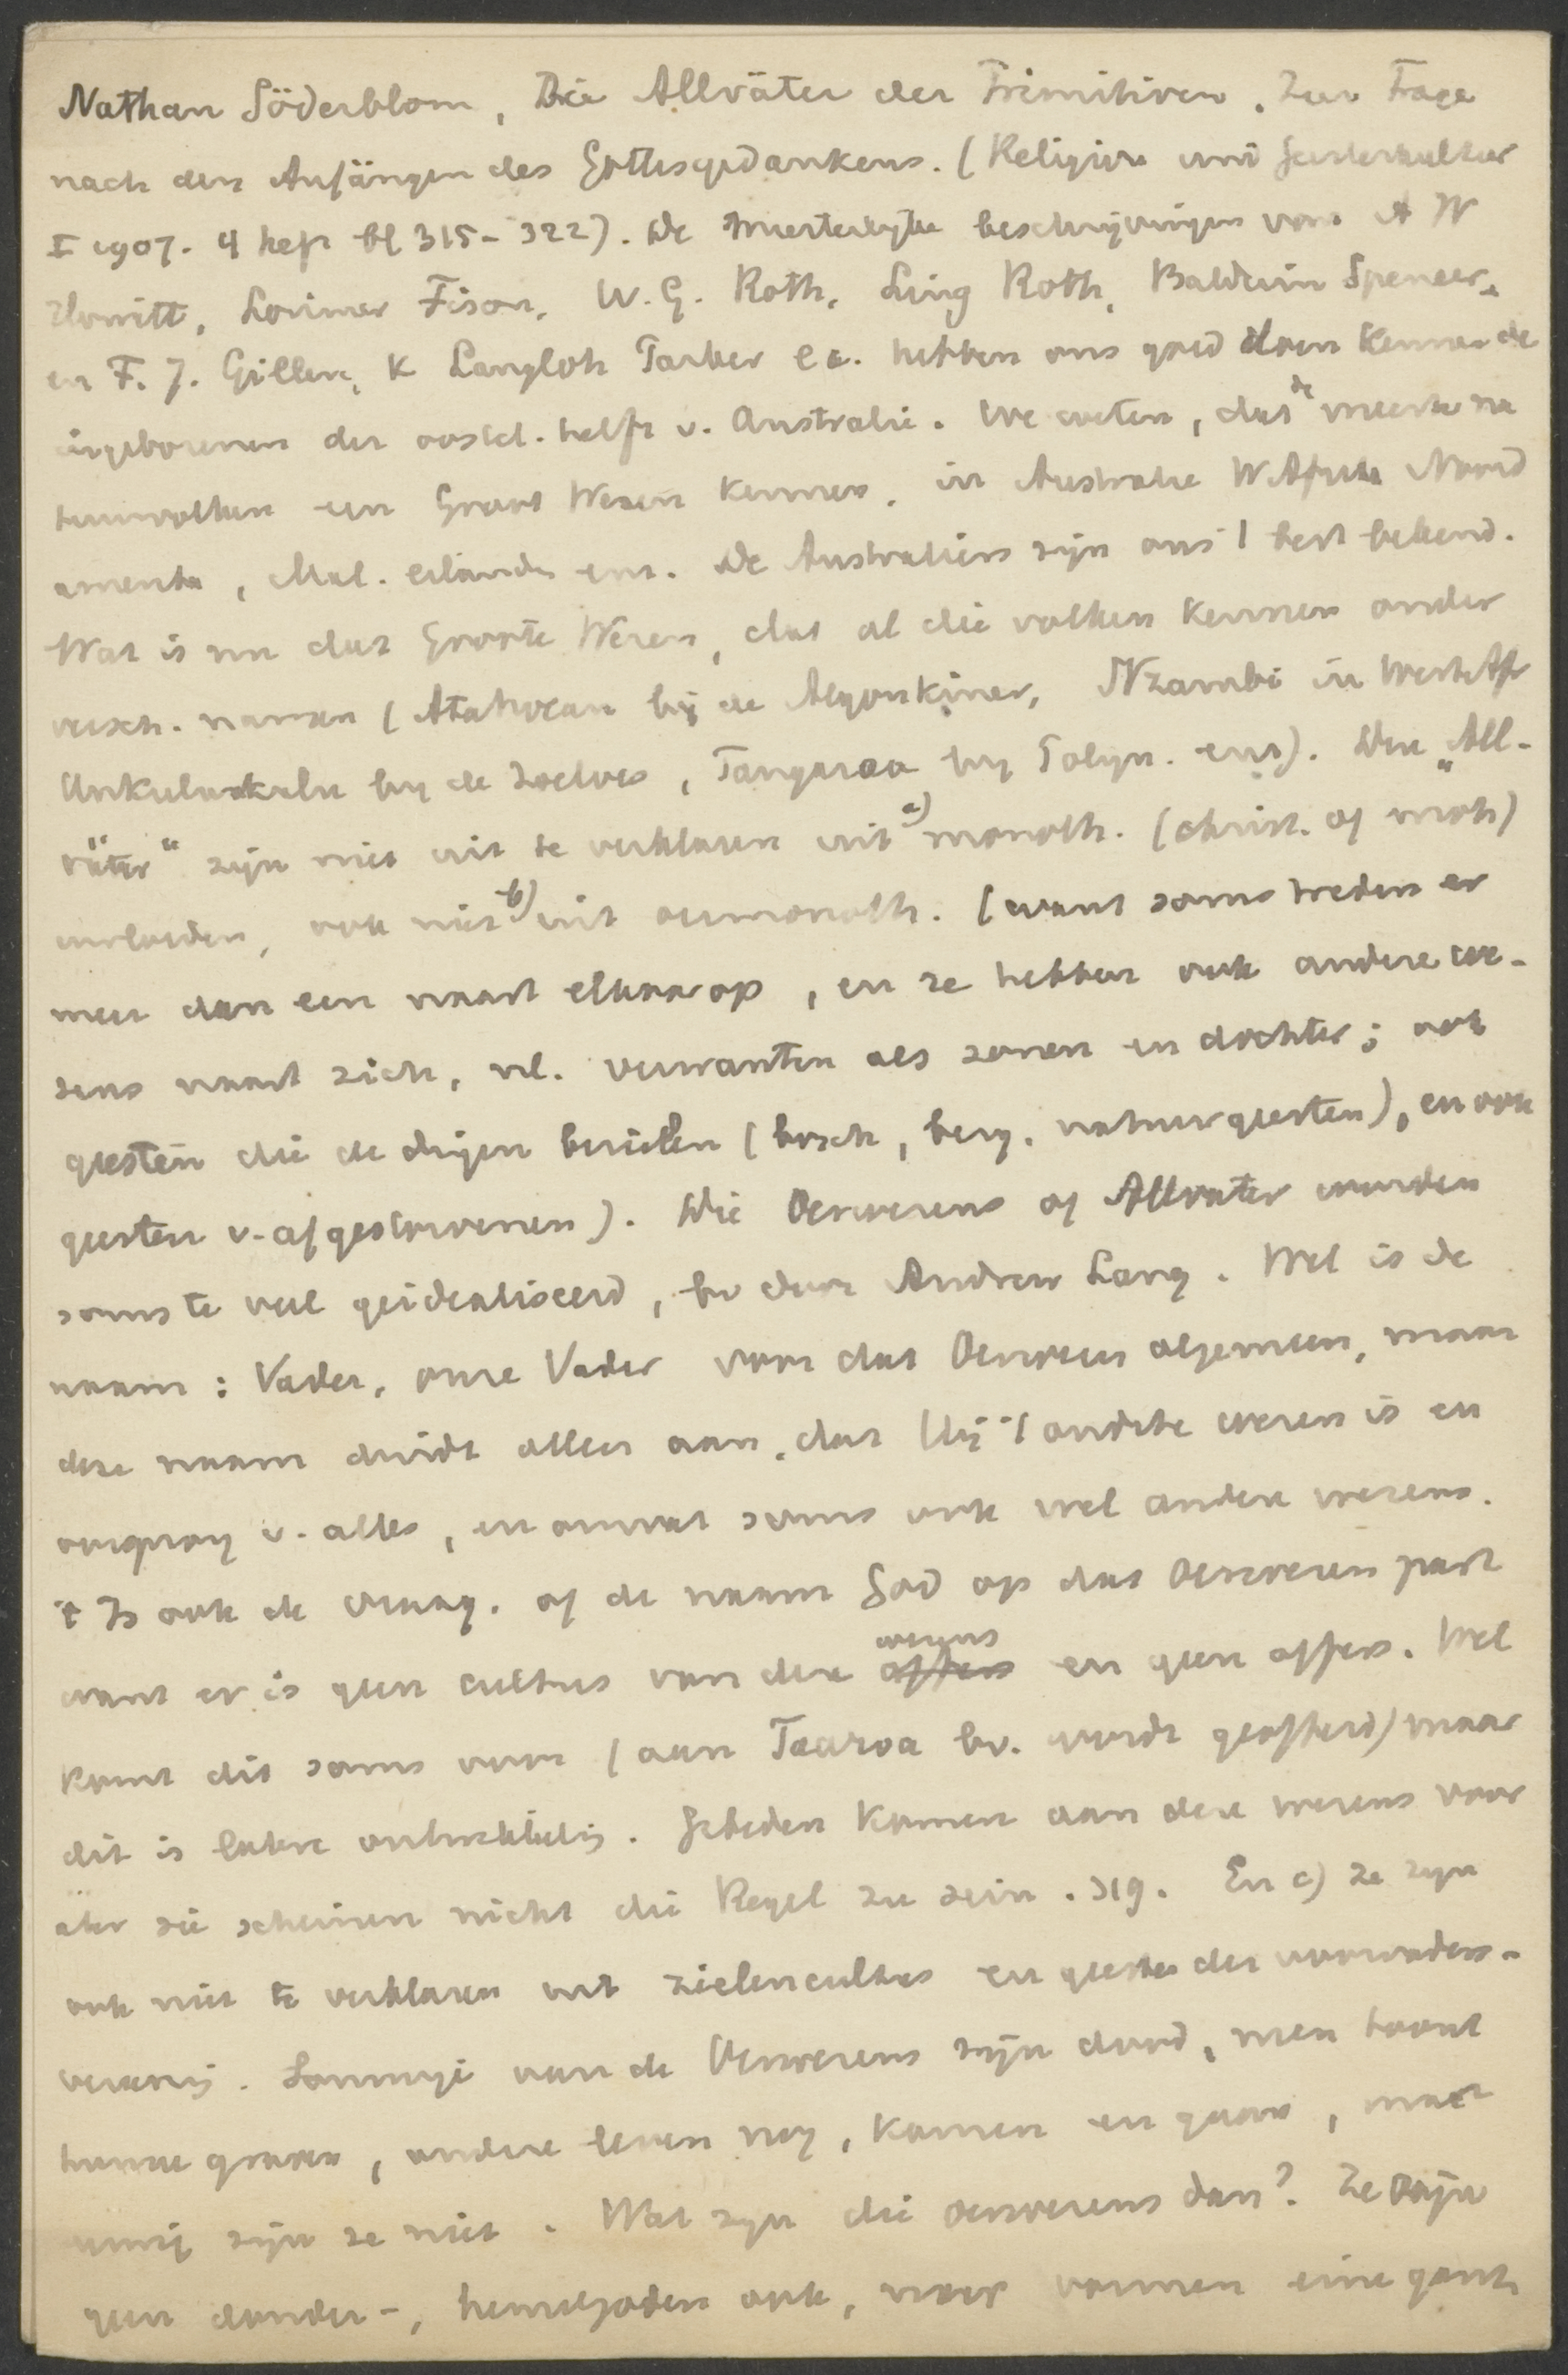 Nathan Söderblom, Die Allväter der Primitiven. Zur Frage
nach den Anfängen des Gottesgedankens. (Religion und Geisteskultur
I 1907. 4 heft bl 315-322). De meesterlijke beschrijvingen van A W
Howitt, Lorimer Fison, W. G. Roth, Ling Roth, Baldwin Spencer,
en F. J. Gillen, K Langloh Parker ea. hebben ons goed doen kennen de
ingeborenen der oostel. helft v. Australie. We weten, dat de meeste na
tuurvolken een Groot Wezen kennen, in Australie W Afrika Noord
amerika, Mal. eilanden enz. De Australiers zijn ons 't best bekend.
Wat is nu dat Groote Wezen, dat al die volken kennen onder
versch. namen (Atahocan bij de Algonkiner, Nzambi in West Afr
Unkulunkulu bij de Zoeloes, Tangaroa bij Polyn. enz). Die „All-
väter“ zijn niet uit te verklaren uit a) monoth. (christ. of moh)
invloeden, ook niet b) uit oermonoth. (want soms treden er
meer dan een naast elkaar op, en ze hebben ook andere we-
zens naast zich, nl. verwanten als zonen en dochter; ook
geesten die de dingen bezielen (bosch, berg, natuurgeesten), en ook
geesten v. afgestorvenen). Die Oerwezens of Allvater worden
soms te veel geidealiseerd, bv door Andrew Lang. Wel is de
naam: Vader, onze Vader voor dat Oerwezen algemeen, maar
deze naam duidt alleen aan, dat hij 't oudste wezen is en
oorsprong v. alles, en omvat soms ook wel andere wezens.
't Is ook de vraag, of de naam God op dat Oerwezen past
want er is geen cultus van deze wezens en geen offers. Wel
komt dit soms voor (aan Taaroa bv. wordt geofferd) maar
dit is latere ontwikkeling. Gebeden komen aan deze wezens voor
aber sie scheinen nicht die Regel zu sein. 319. En c) ze zijn
ook niet te verklaren uit zielencultus en geesten der voorvaders-
vereering. Sommige van de Oerwezens zijn dood, men toont
hunne graven, andere leven nog, komen en gaan, maar
zijn ze niet. Wat zijn die oerwezens dan? Ze zijn
geen donder-, hemelgoden ook, maar vormen eine ganz